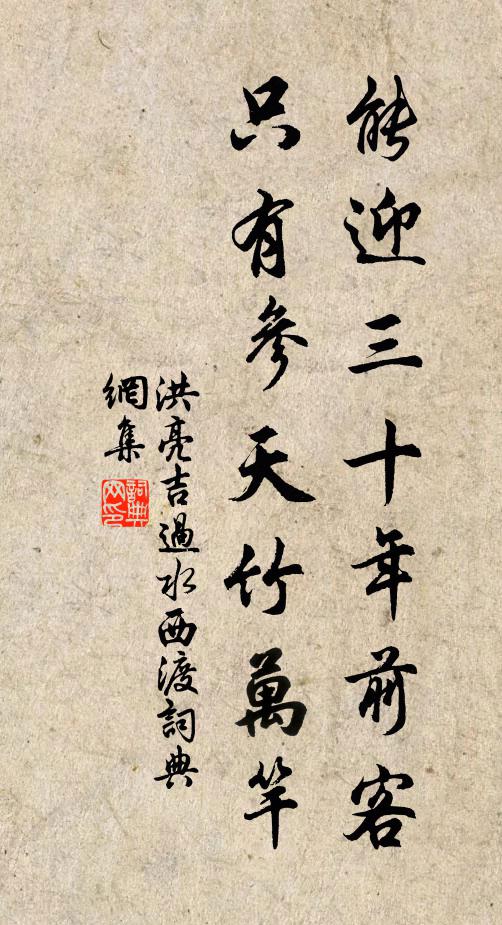 能迎三十年前客
只有參天竹萬竿
洪亮吉過水西渡詞典
網集
詞典
网印